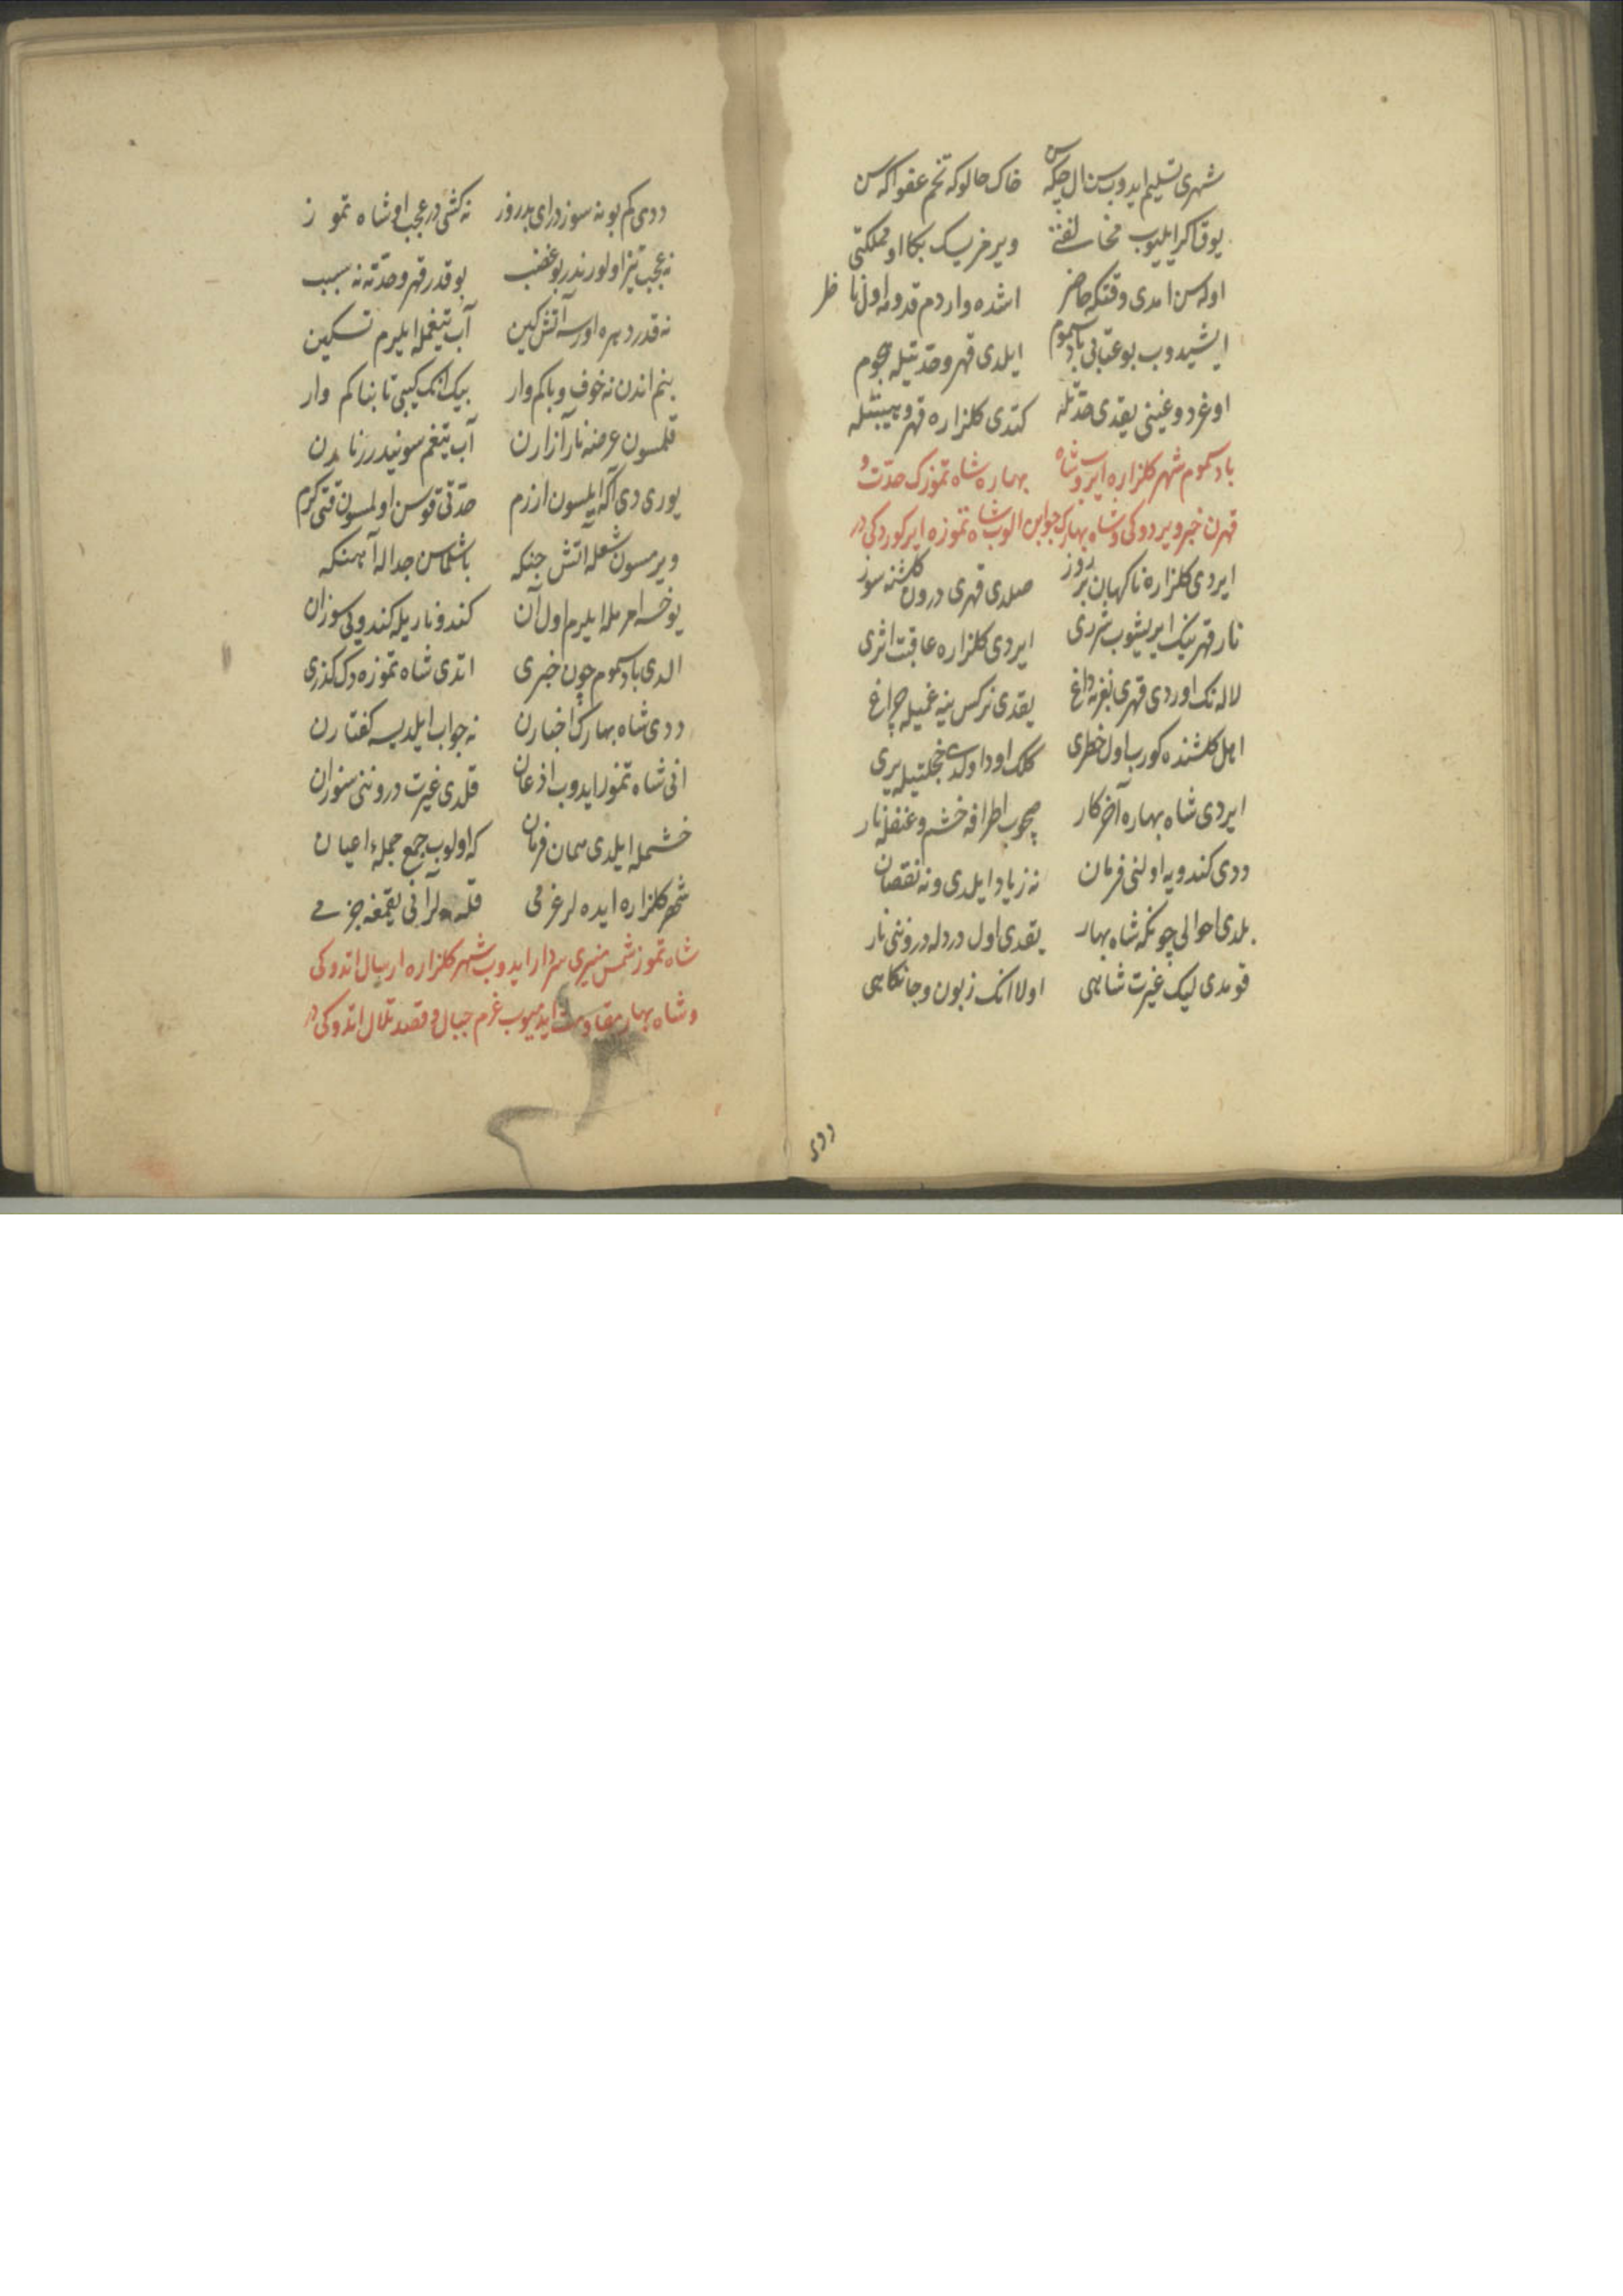 شهری تسلیم ایدوب سن ال چکه سن خاک حالوکه تخم عفو اکه سن
یوق اکر ایلیوب مخالفتی ویرمزیسک بکا او مملکتی
اوله سن امدی وقتکه حاضر اشده واردم قدومه اول ناظر
ایشیدوب بو عتابی باد سموم ایلدی قهر و حدتیله هجوم
اوغردوغینی یقدی حدتله کتدی کلزاره قهر و هیبتله
باد سموم شهر کلزاره ایروب شاه بهاره شاه تموزک حدت و
قهرن خبر ویردوکی و شاه بهارک جوابن الوب شاه تموزه ایرکوردکی در
ایردی کلزاره ناکهان بر روز صلدی قهری درون کلشنه سوز
نار قهرینک ایریشوب شرری ایردی کلزاره عاقبت اثری
لاله نک اوردی قهری بغرنه داغ یقدی نرکس ینه غمیله چراغ
اهل کلشنده کورب اول خطری کلک اودا اولدی خجلتیله یری
ایردی شاه بهاره آخر کار صچوب اطرافه خشم و غضبله نار
ددی کندویه اولنی فرمان نه زیاد ایلدی و نه نقصان
بلدی احوالی چونکه شاه بهار یقدی اول درد له دروننی نار
قومدی لیک غیرت شاهی اولا انک زبون و جانکاهی
ددی
ددی کم بو نه سوزدر ای بدروز نه کشی در عجب او شاه تموز
نه عجب تیز اولور ندر بو غضب بو قدر قهر و حدته نه سبب
نه قدر دهره اورسه آتش کین آب تیغمله ایلرم تسکین
بنم اندن نه خوف و باکم وار بیک انک کیبی تابناکم وار
قلمسون عرضه نار آزارن آب تیغم سونیدرر نارن
یوری دی اکا ایلمسون ارزم حدتی قوسن اولمسون قتی کرم
ویرمسون شعله آتش جنکه باشلماسن جداله آهنکه
یوخسه امر مله ایلرم اول آن کندو ناریله کندویی سوزان
الدی باد سموم چون خبری اتدی شاه تموزه دک کذری
ددی شاه بهارک اخبارن نه جواب ایلدیسه کفتارن
انی شاه تموز ایدوب اذعان قلدی غیرت دروننی سوزان
خشمله ایلدی همان فرمان که اولوب جمع جمله اعیان
شهر کلزاره ایده لر عزمی قلـه لر انی یقمغه جزمی
شاه تموز شمس منیری سردار ایدوب شهر کلزاره ارسال اتدوکی
و شاه بهار مقاومت ایدمیوب عزم جبال و قصد تلال اتدوکی در